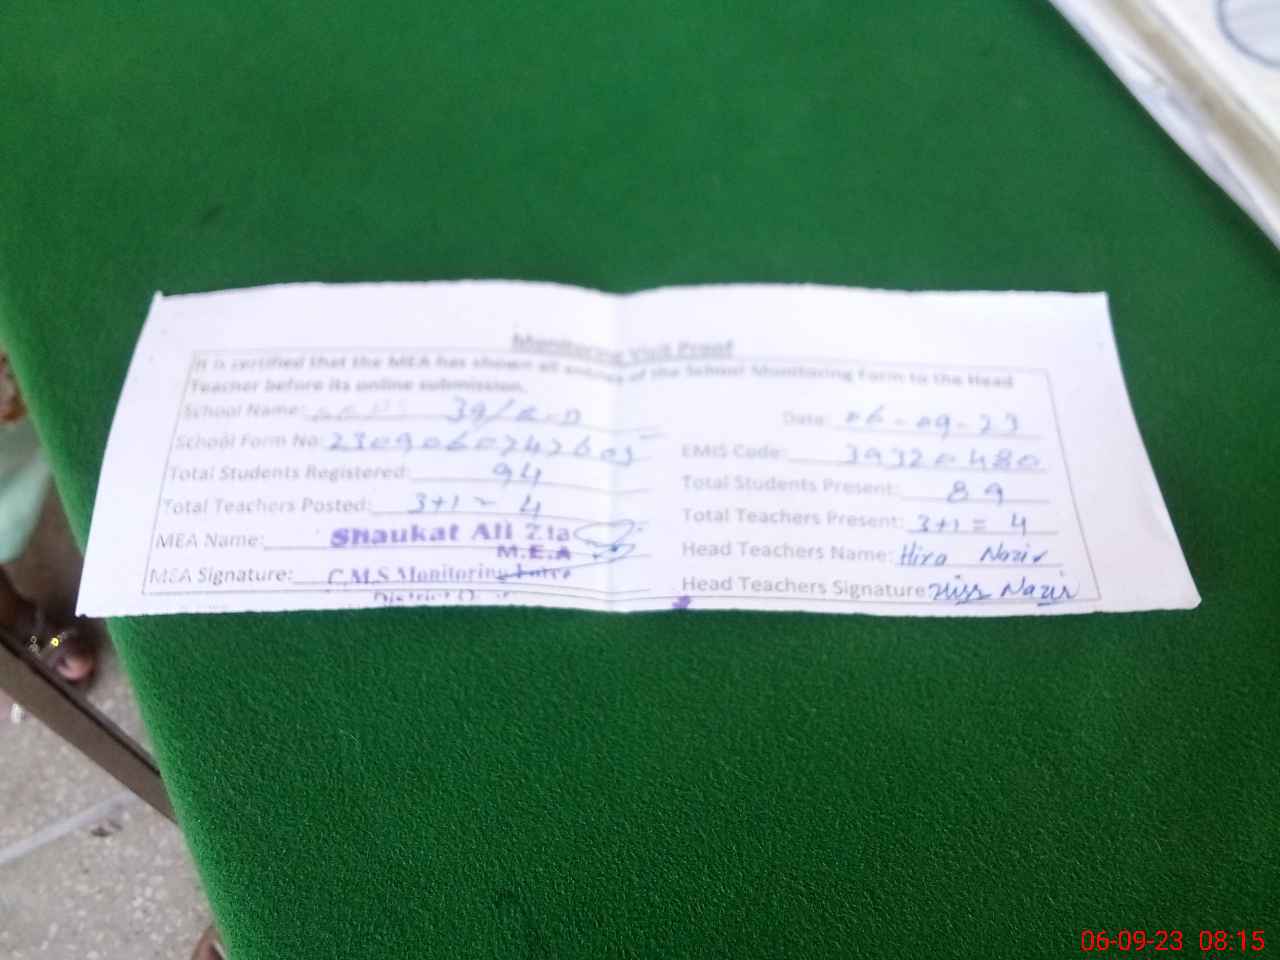 Monitoring Visit Proof
It is certified that the MEA has shown all entries of the School Monitoring Form to the Head
Teacher before its online submission.
School Name: 39/
Date: 06-09-23
School Form No: 
EMIS Code: 39320480
Total Students Registered: 94
Total Students Present: 89
Total Teachers Posted: 3+1 = 4
Total Teachers Present: 3+1 = 4
MEA Name: Shaukat Ali Zia
M.E.A
Head Teachers Name: Hira Nazir
MEA Signature: C.M.S Monitoring Force
Head Teachers Signature: Nazir
District
06-09-23 08:15